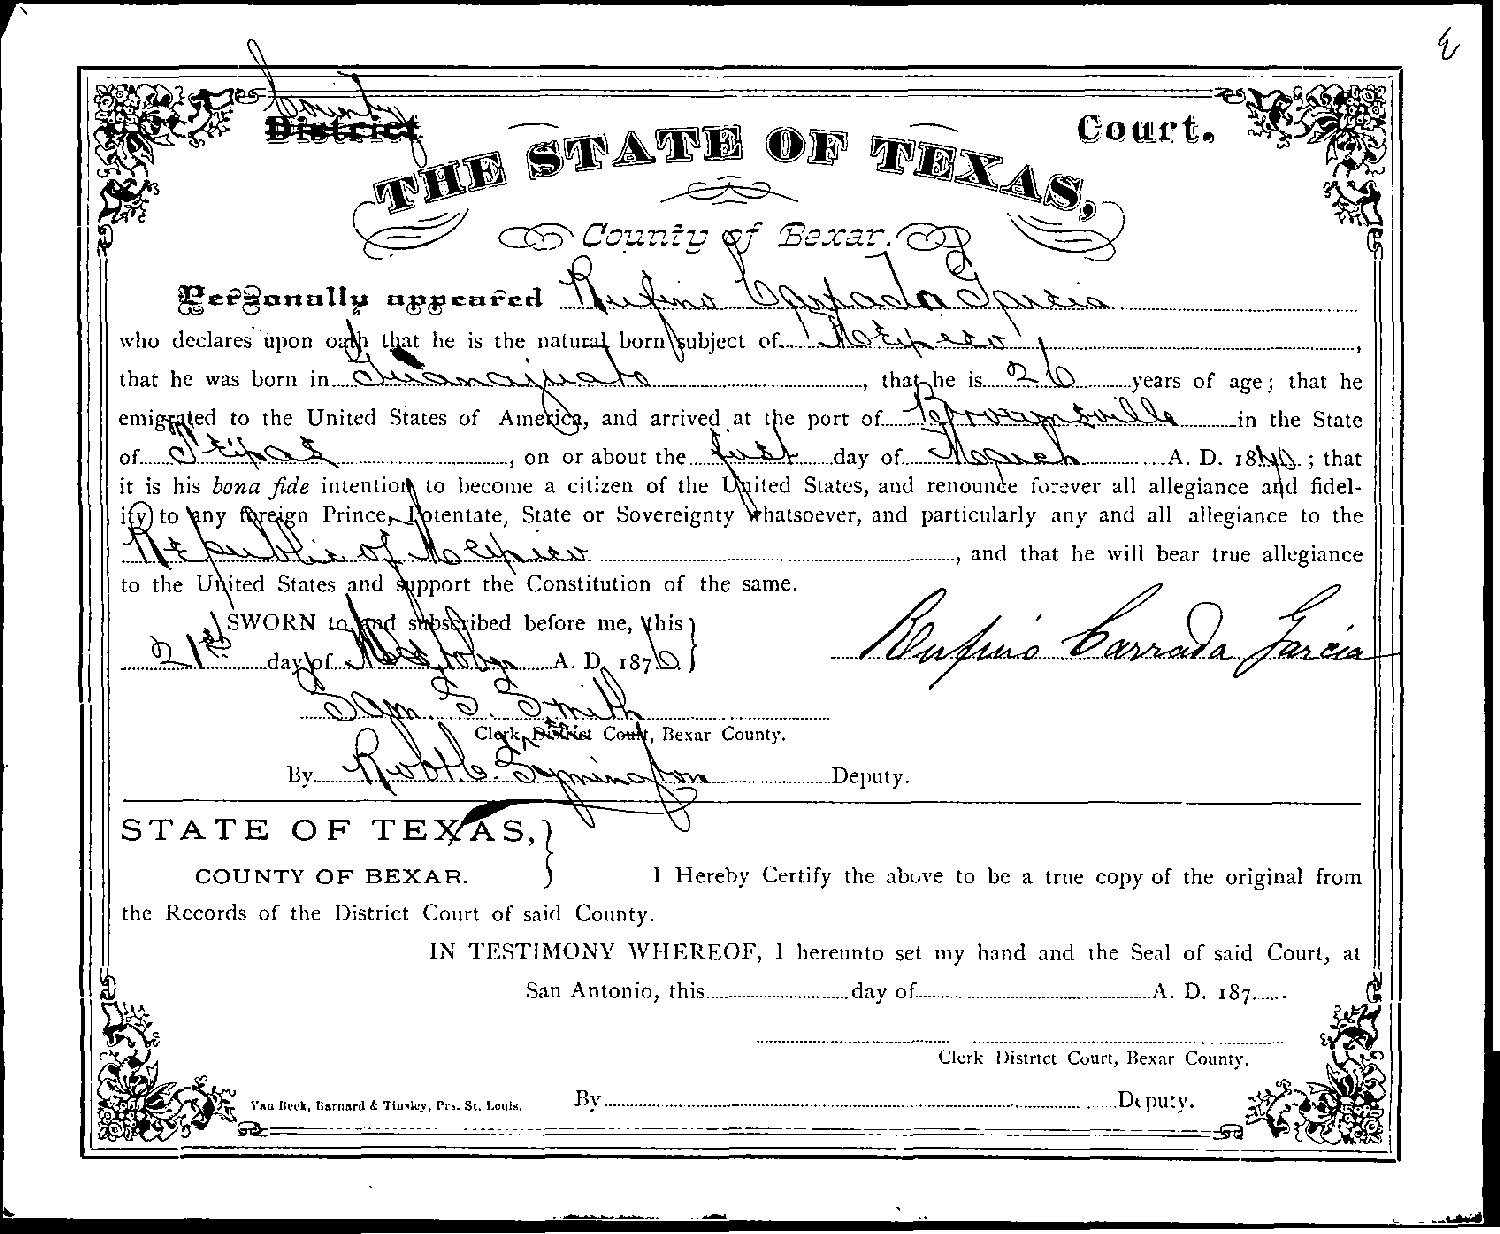 County
District Court.
THE STATE OF TEXAS,
County of Bexar.
Personally appeared Rufino Carrada Garcia
who declares upon oath that he is the natural born subject of Mexico,
that he was born in Guanajuato, that he is 26 years of age; that he
emigrated to the United States of America, and arrived at the port of Brownsville in the State
of Texas, on or about the first day of March A. D. 18; that
it is his bona fide intention to become a citizen of the United States, and renounce forever all allegiance and fidel-
ity to any foreign Prince, Potentate, State or Sovereignty whatsoever, and particularly any and all allegiance to the
Republic of Mexico, and that he will bear true allegiance
to the United States and support the Constitution of the same.
SWORN to and subscribed before me, this
21st day of October A. D. 1876 Rufino Carrada Garcia
Sam. S. Smith
Clerk District Court, Bexar County.
By Robt C. Symington Deputy.
STATE OF TEXAS,
COUNTY OF BEXAR. I Hereby Certify the above to be a true copy of the original from
the Records of the District Court of said County.
IN TESTIMONY WHEREOF, I hereunto set my hand and the Seal of said Court, at
San Antonio, this day of A. D. 187
Clerk District Court, Bexar County.
Van Beck, Barnard & Tinsley, Prs. St. Louis. By Deputy.